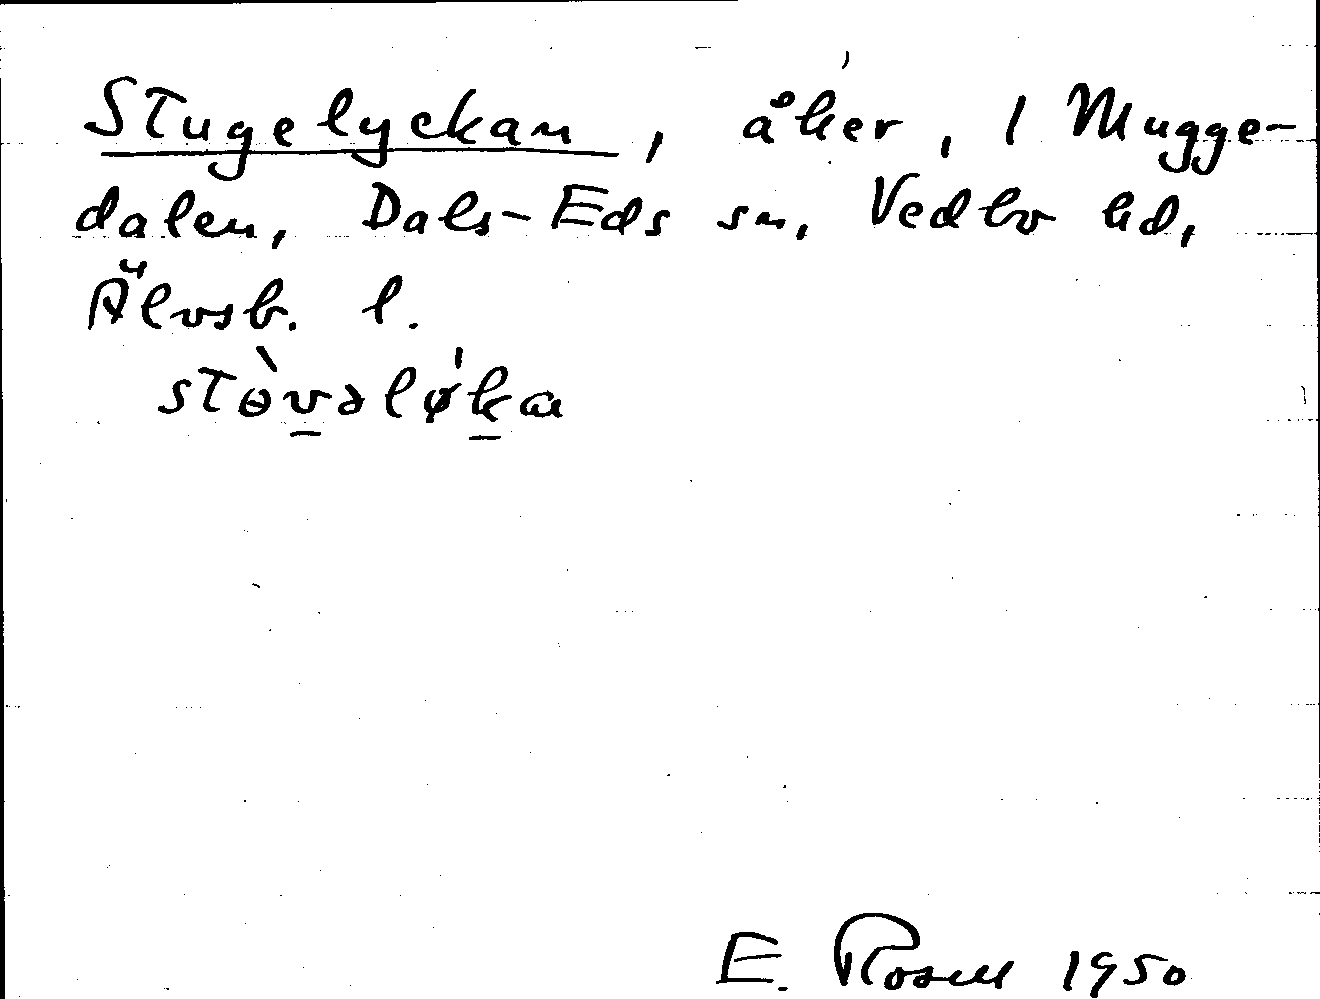 Stugelyckan, åker, 1 Mugge-
dalen, Dals-Eds sn, Vedbo hd,
Älvsb. l.
stɵ̀v̠əløˈk̠a
E. Rosell 1950